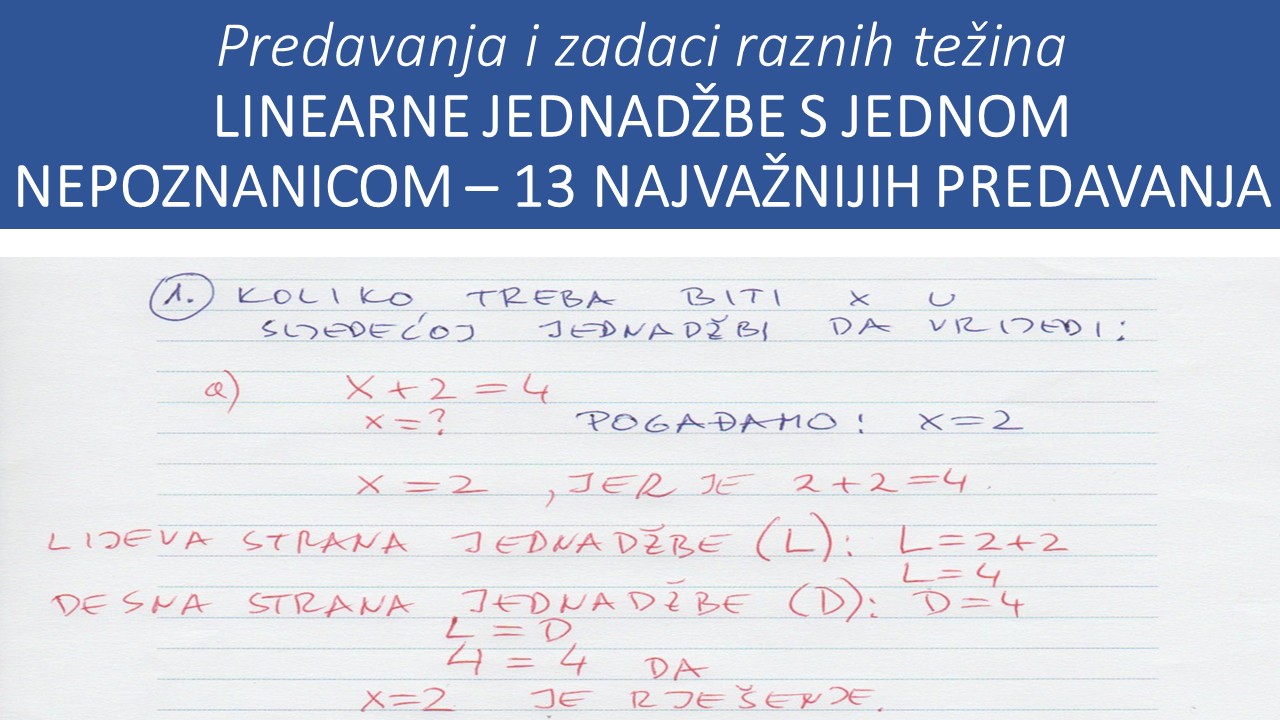 Predavanja i zadaci raznih težina
LINEARNE JEDNADŽBE S JEDNOM
NEPOZNANICOM – 13 NAJVAŽNIJIH PREDAVANJA
1. KOLIKO TREBA BITI X U
SLJEDEĆOJ JEDNADŽBI DA VRIJEDI:
a) X + 2 = 4
x = ? POGAĐAMO: x = 2
x = 2, JER JE 2 + 2 = 4.
LIJEVA STRANA JEDNADŽBE (L): L = 2 + 2
L = 4
DESNA STRANA JEDNADŽBE (D): D = 4
L = D
4 = 4 DA
x = 2 JE RJEŠENJE.